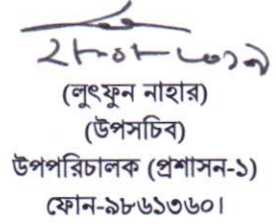 ২৮-০৮-২০১৯
(লুৎফুন নাহার)
(উপসচিব)
উপপরিচালক (প্রশাসন-১)
ফোন-৯৮৬১৩৬০।